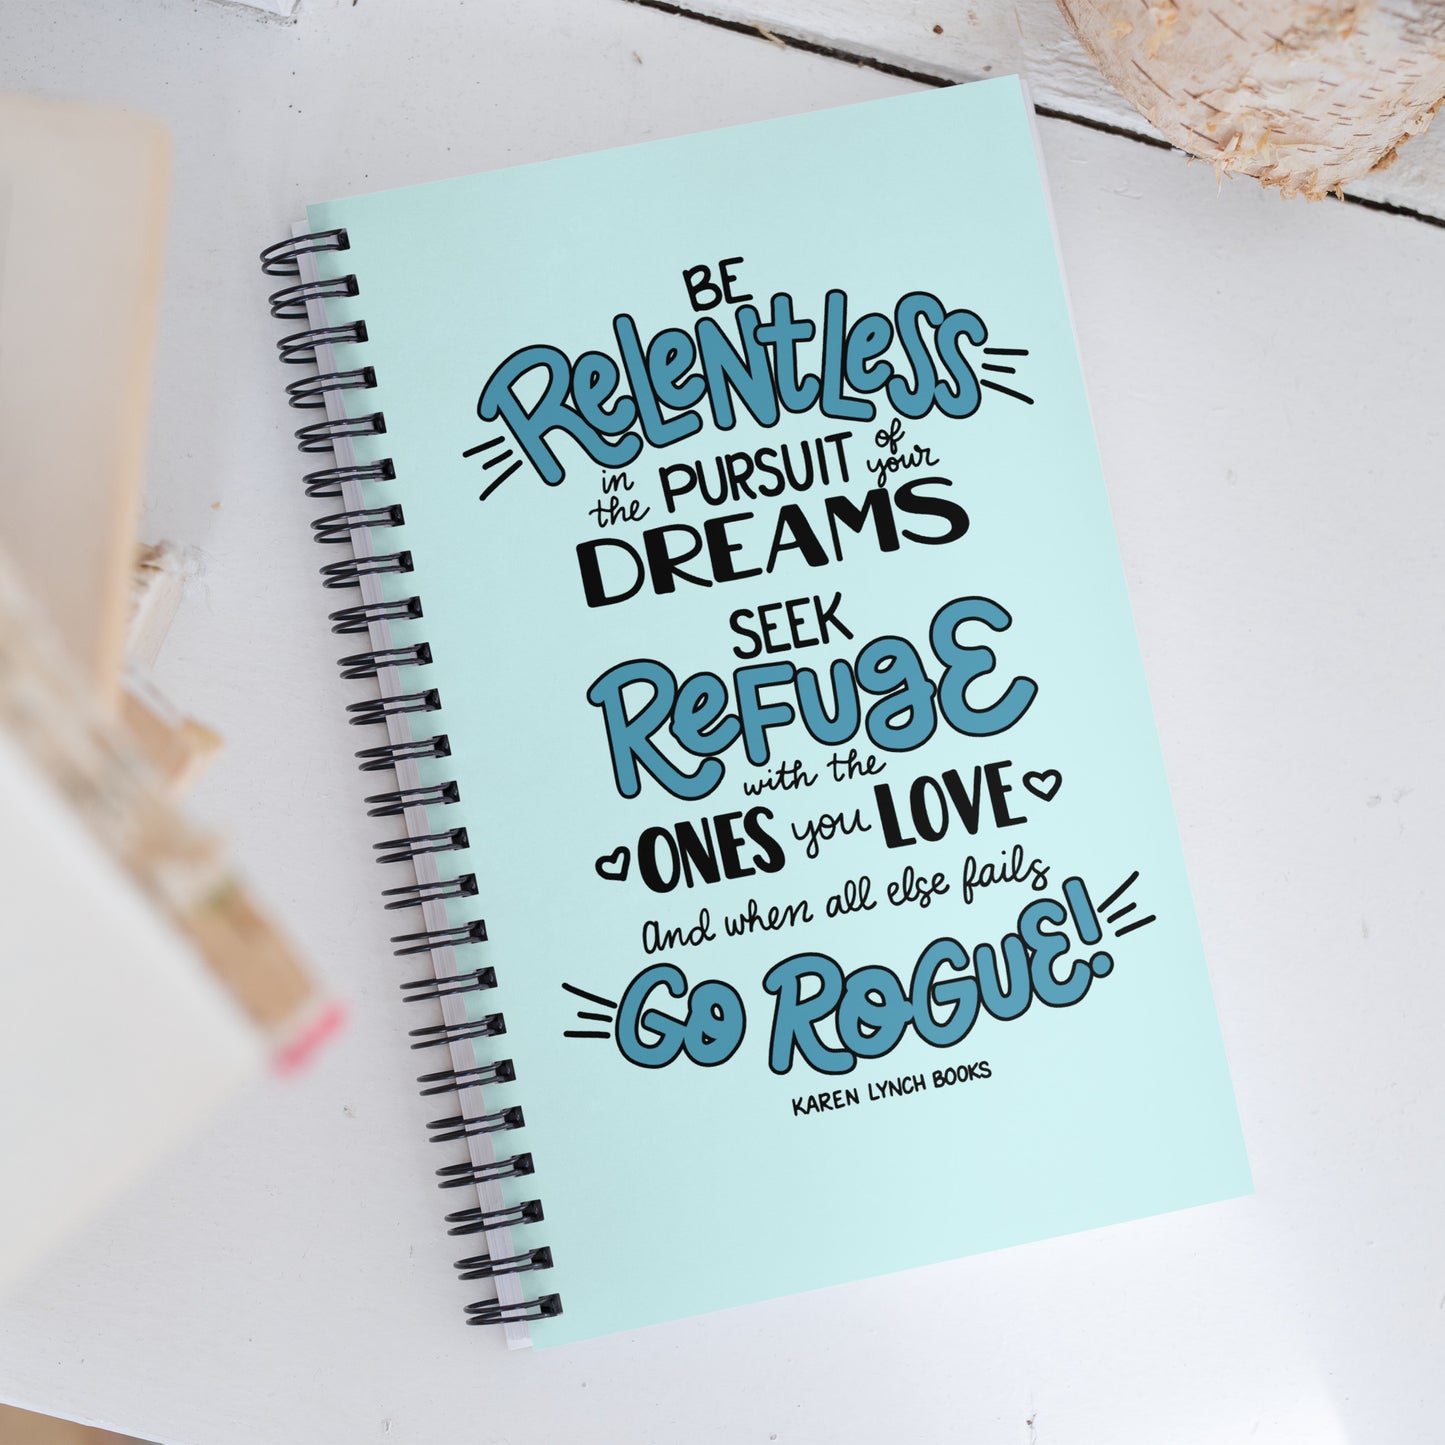 BE
ReLeNtLeSS
in the PURSUIT of your
DREAMS
SEEK
ReFUgE
with the
ONES you LOVE
and when all else fails
GO ROGUE!
KAREN LYNCH BOOKS